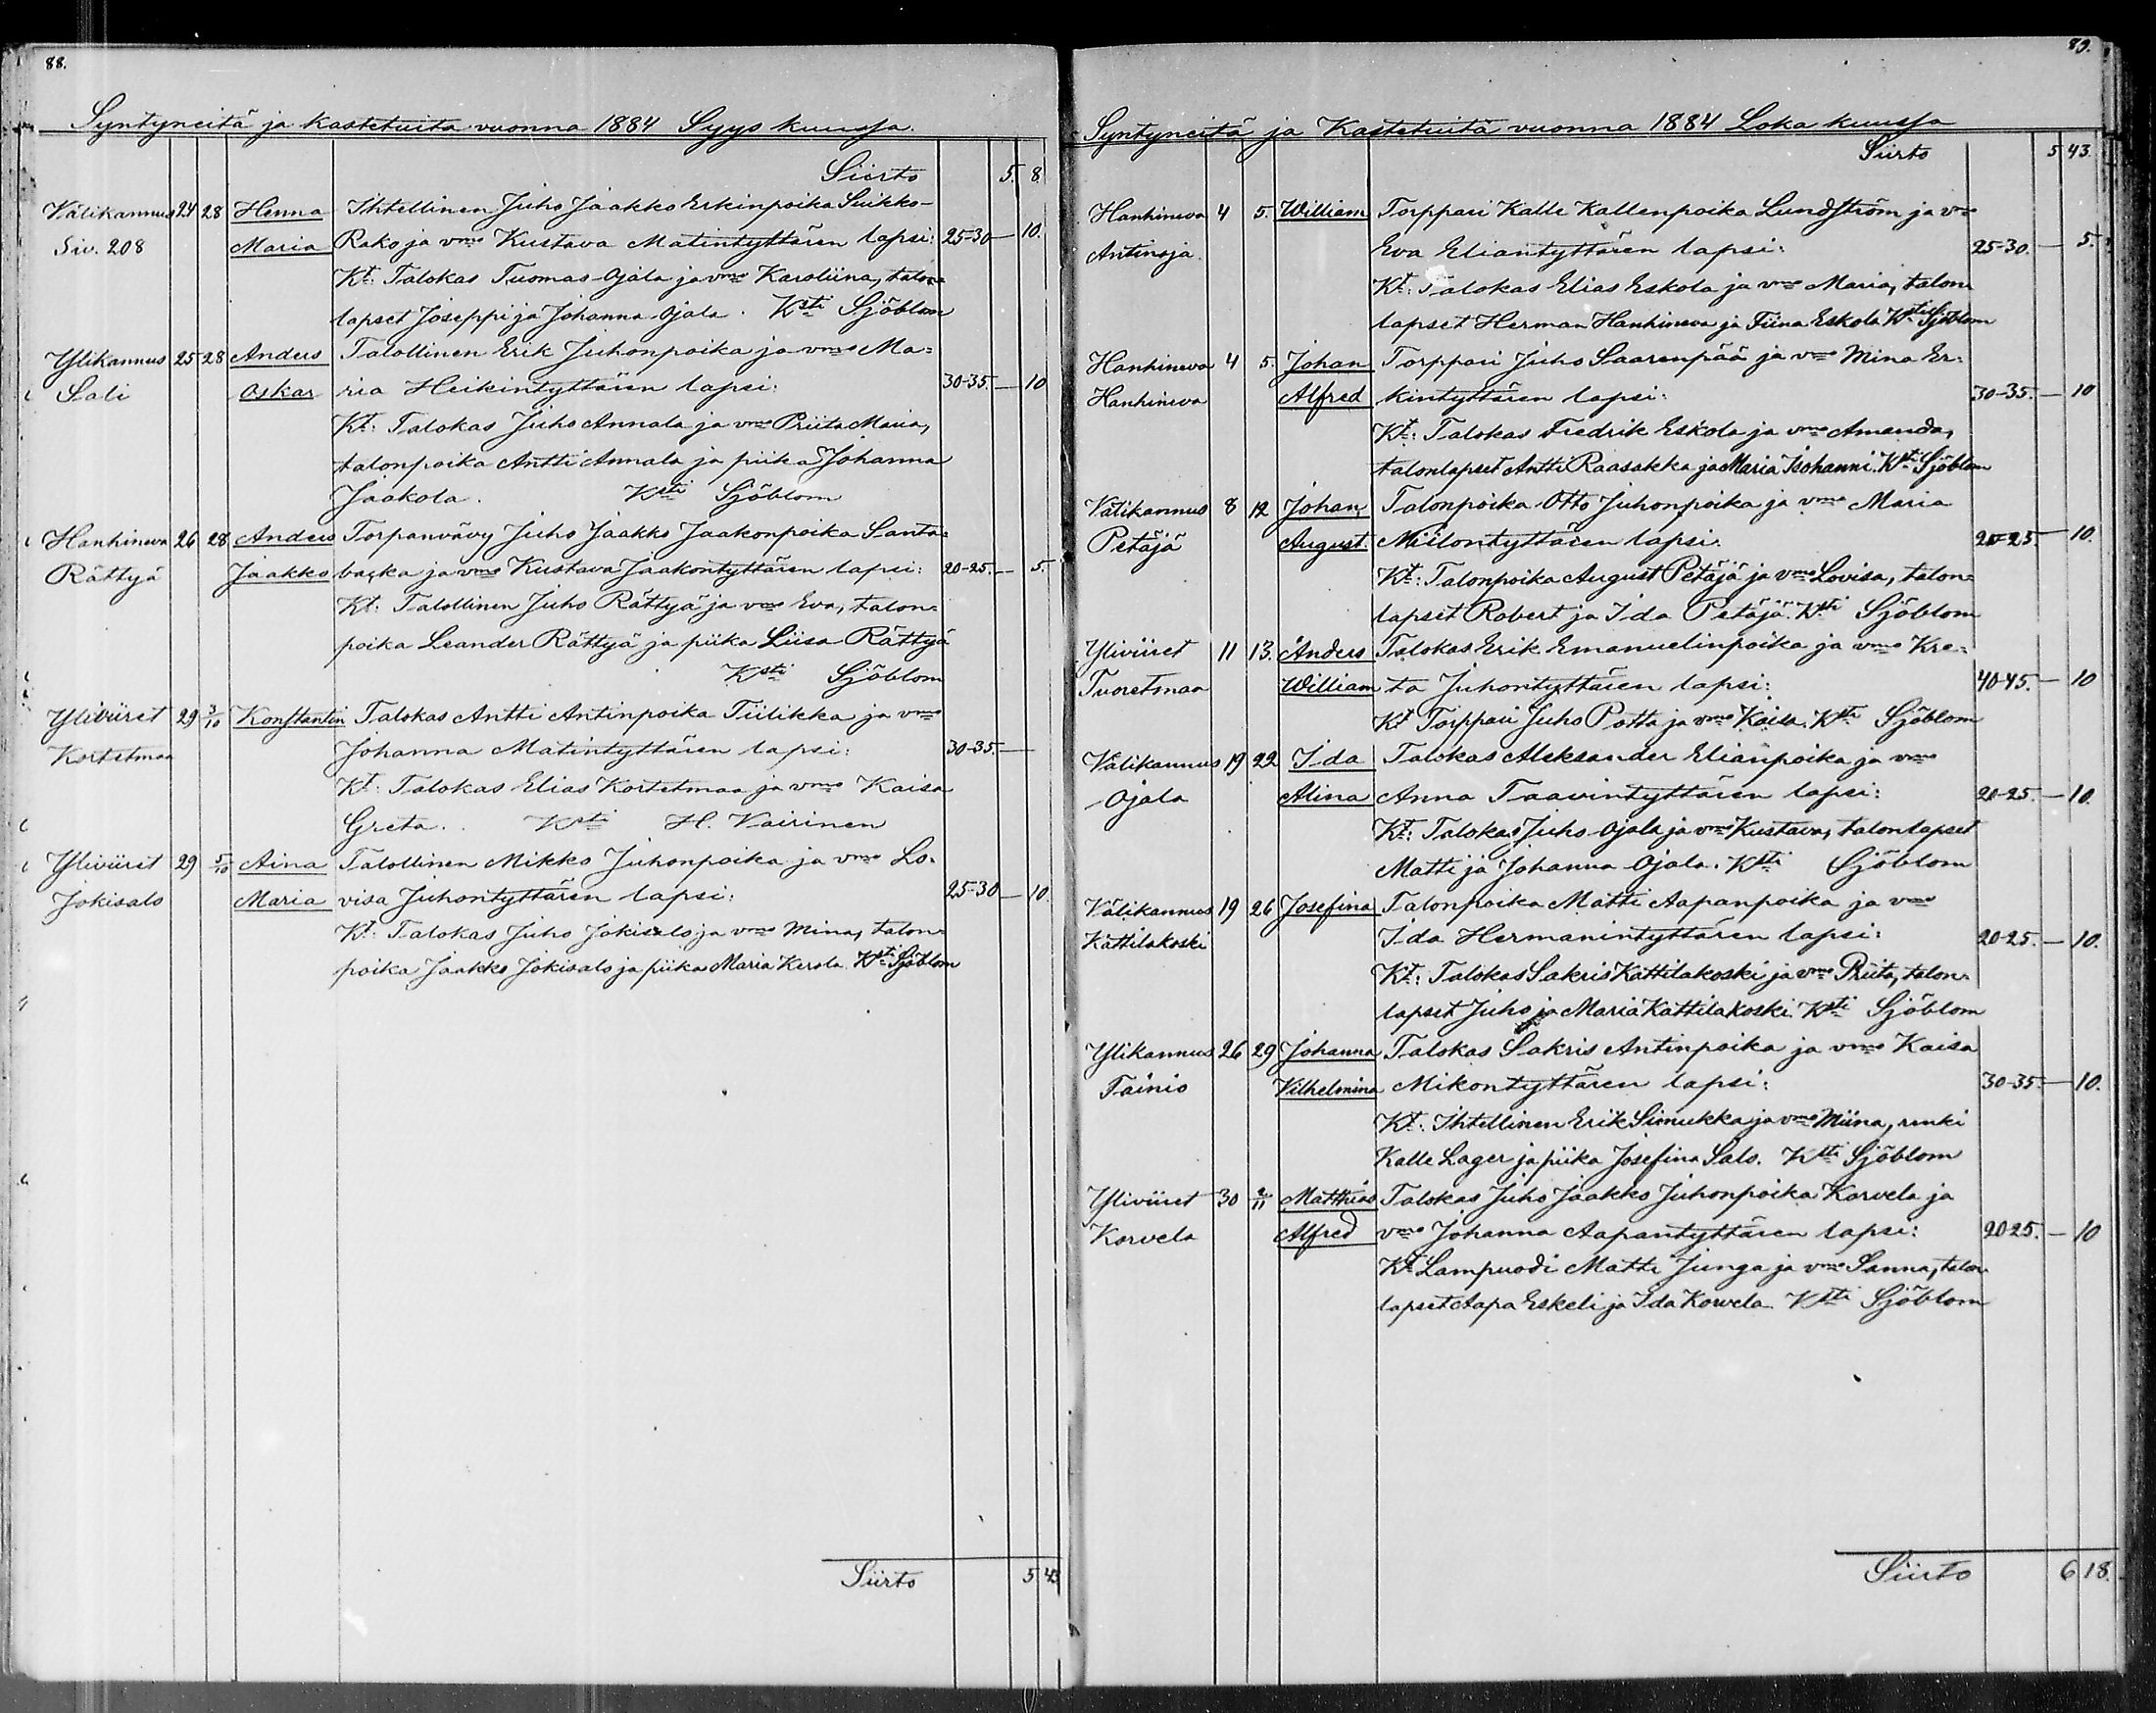 88.
Syntyneitä ja kastetuita vuonna 1884 Syys kuussa.
Siirto 5. 8.
Välikannus 24 28 Henna Ihtellinen Juho Jaakko Erkinpoika Suikko-
Siv. 208 Maria Rako ja vmo Kustava Matintyttären lapsi: 25-30 — 10.
Kt: Talokas Tuomas Ojala ja vmo Karoliina, talon=
lapset Joseppi ja Johanna Ojala. Ksti Sjöblom
Ylikannus 25 28 Anders Talollinen Erik Juhonpoika ja vmo Ma=
Sali Oskar ria Heikintyttären lapsi: 30-35 — 10
Kt: Talokas Juho Annala ja vmo Priita Maria,
talonpoika Antti Annala ja piika Johanna
Jaakola. Ksti Sjöblom
Hanhineva 26 28 Anders Torpanvävy Juho Jaakko Jaakonpoika Santa=
Rättyä Jaakko backa ja vmo Kustava Jaakontyttären lapsi: 20-25. — 5.
Kt: Talollinen Juho Rättyä ja vmo Eva, talon=
poika Leander Rättyä ja piika Liisa Rättyä
Ksti Sjöblom
Yliviiret 29 3/10 Konstantin Talokas Antti Antinpoika Tiilikka ja vmo
Kortetmaa Johanna Matintyttären lapsi: 30-35 —
Kt: Talokas Elias Kortetmaa ja vmo Kaisa
Greta. Ksti H. Vairinen
Yliviiret 29 5/10 Aina Talollinen Mikko Juhonpoika ja vmo Lo=
Jokisalo Maria visa Juhontyttären lapsi: 25-30 — 10.
Kt: Talokas Juho Jokisalo ja vmo Mina, talon=
poika Jaakko Jokisalo ja piika Maria Kerola. Ksti Sjöblom
Siirto 5 43
89.
Syntyneitä ja Kastetuitä vuonna 1884 Loka kuussa
Siirto 5 43.
Hanhineva 4 5. William Torppari Kalle Kallenpoika Lundström ja vmo
Antinoja. Eva Eliantyttären lapsi: 25-30. — 5.
Kt: Talokas Elias Eskola ja vmo Maria, talon
lapset Herman Hanhineva ja Fiina Eskola Ksti Sjöblom
Hanhineva 4 5. Johan Torppari Juho Saarenpää ja vmo Mina Er=
Hanhineva Alfred kintyttären lapsi: 30-35. — 10
Kt: Talokas Fredrik Eskola ja vmo Amanda,
talonlapset Antti Raasakka ja Maria Isohanni. Ksti Sjöblom
Välikannus 8 12 Johan Talonpoika Otto Juhonpoika ja vmo Maria
Petäjä August. Miilontyttären lapsi. 20-25. — 10.
Kt: Talonpoika August Petäjä ja vmo Lovisa, talon=
lapset Robert ja Ida Petäjä. Ksti Sjöblom
Yliviiret 11 13. Anders Talokas Erik Emanuelinpoika ja vmo Kre=
Tuoretmaa William ta Juhontyttären lapsi: 40-45. — 10
Kt Torppari Juho Potta ja vmo Kaisa. Ksti Sjöblom
Välikannus 19 22 Ida Talokas Aleksander Elianpoika ja vmo
Ojala Alina Anna Taavintyttären lapsi: 20-25. — 10.
Kt: Talokas Juho Ojala ja vmo Kustava, talonlapset
Matti ja Johanna Ojala. Ksti Sjöblom
Välikannus 19 26 Josefina Talonpoika Matti Aapanpoika ja vmo
Kattilakoski Ida Hermanintyttären lapsi: 20-25. — 10.
Kt: Talokas Sakris Kattilakoski ja vmo Priita, talon=
lapset Juho ja Maria Kattilakoski. Ksti Sjöblom
Ylikannus 26 29 Johanna Talokas Sakris Antinpoika ja vmo Kaisa
Tainio Vilhelmina Mikontyttären lapsi: 30-35. — 10.
Kt: Ihtellinen Erik Simukka ja vmo Miina, renki
Kalle Lager ja piika Josefina Salo. Ksti Sjöblom
Yliviiret 30 2/11 Matthias Talokas Juho Jaakko Juhonpoika Korvela ja
Korvela Alfred vmo Johanna Aapantyttären lapsi: 20-25. — 10
Kt Lampuodi Matti Junga ja vmo Sanna, talon
lapset Aapa Eskeli ja Ida Korvela. Ksti Sjöblom
Siirto 6 18.